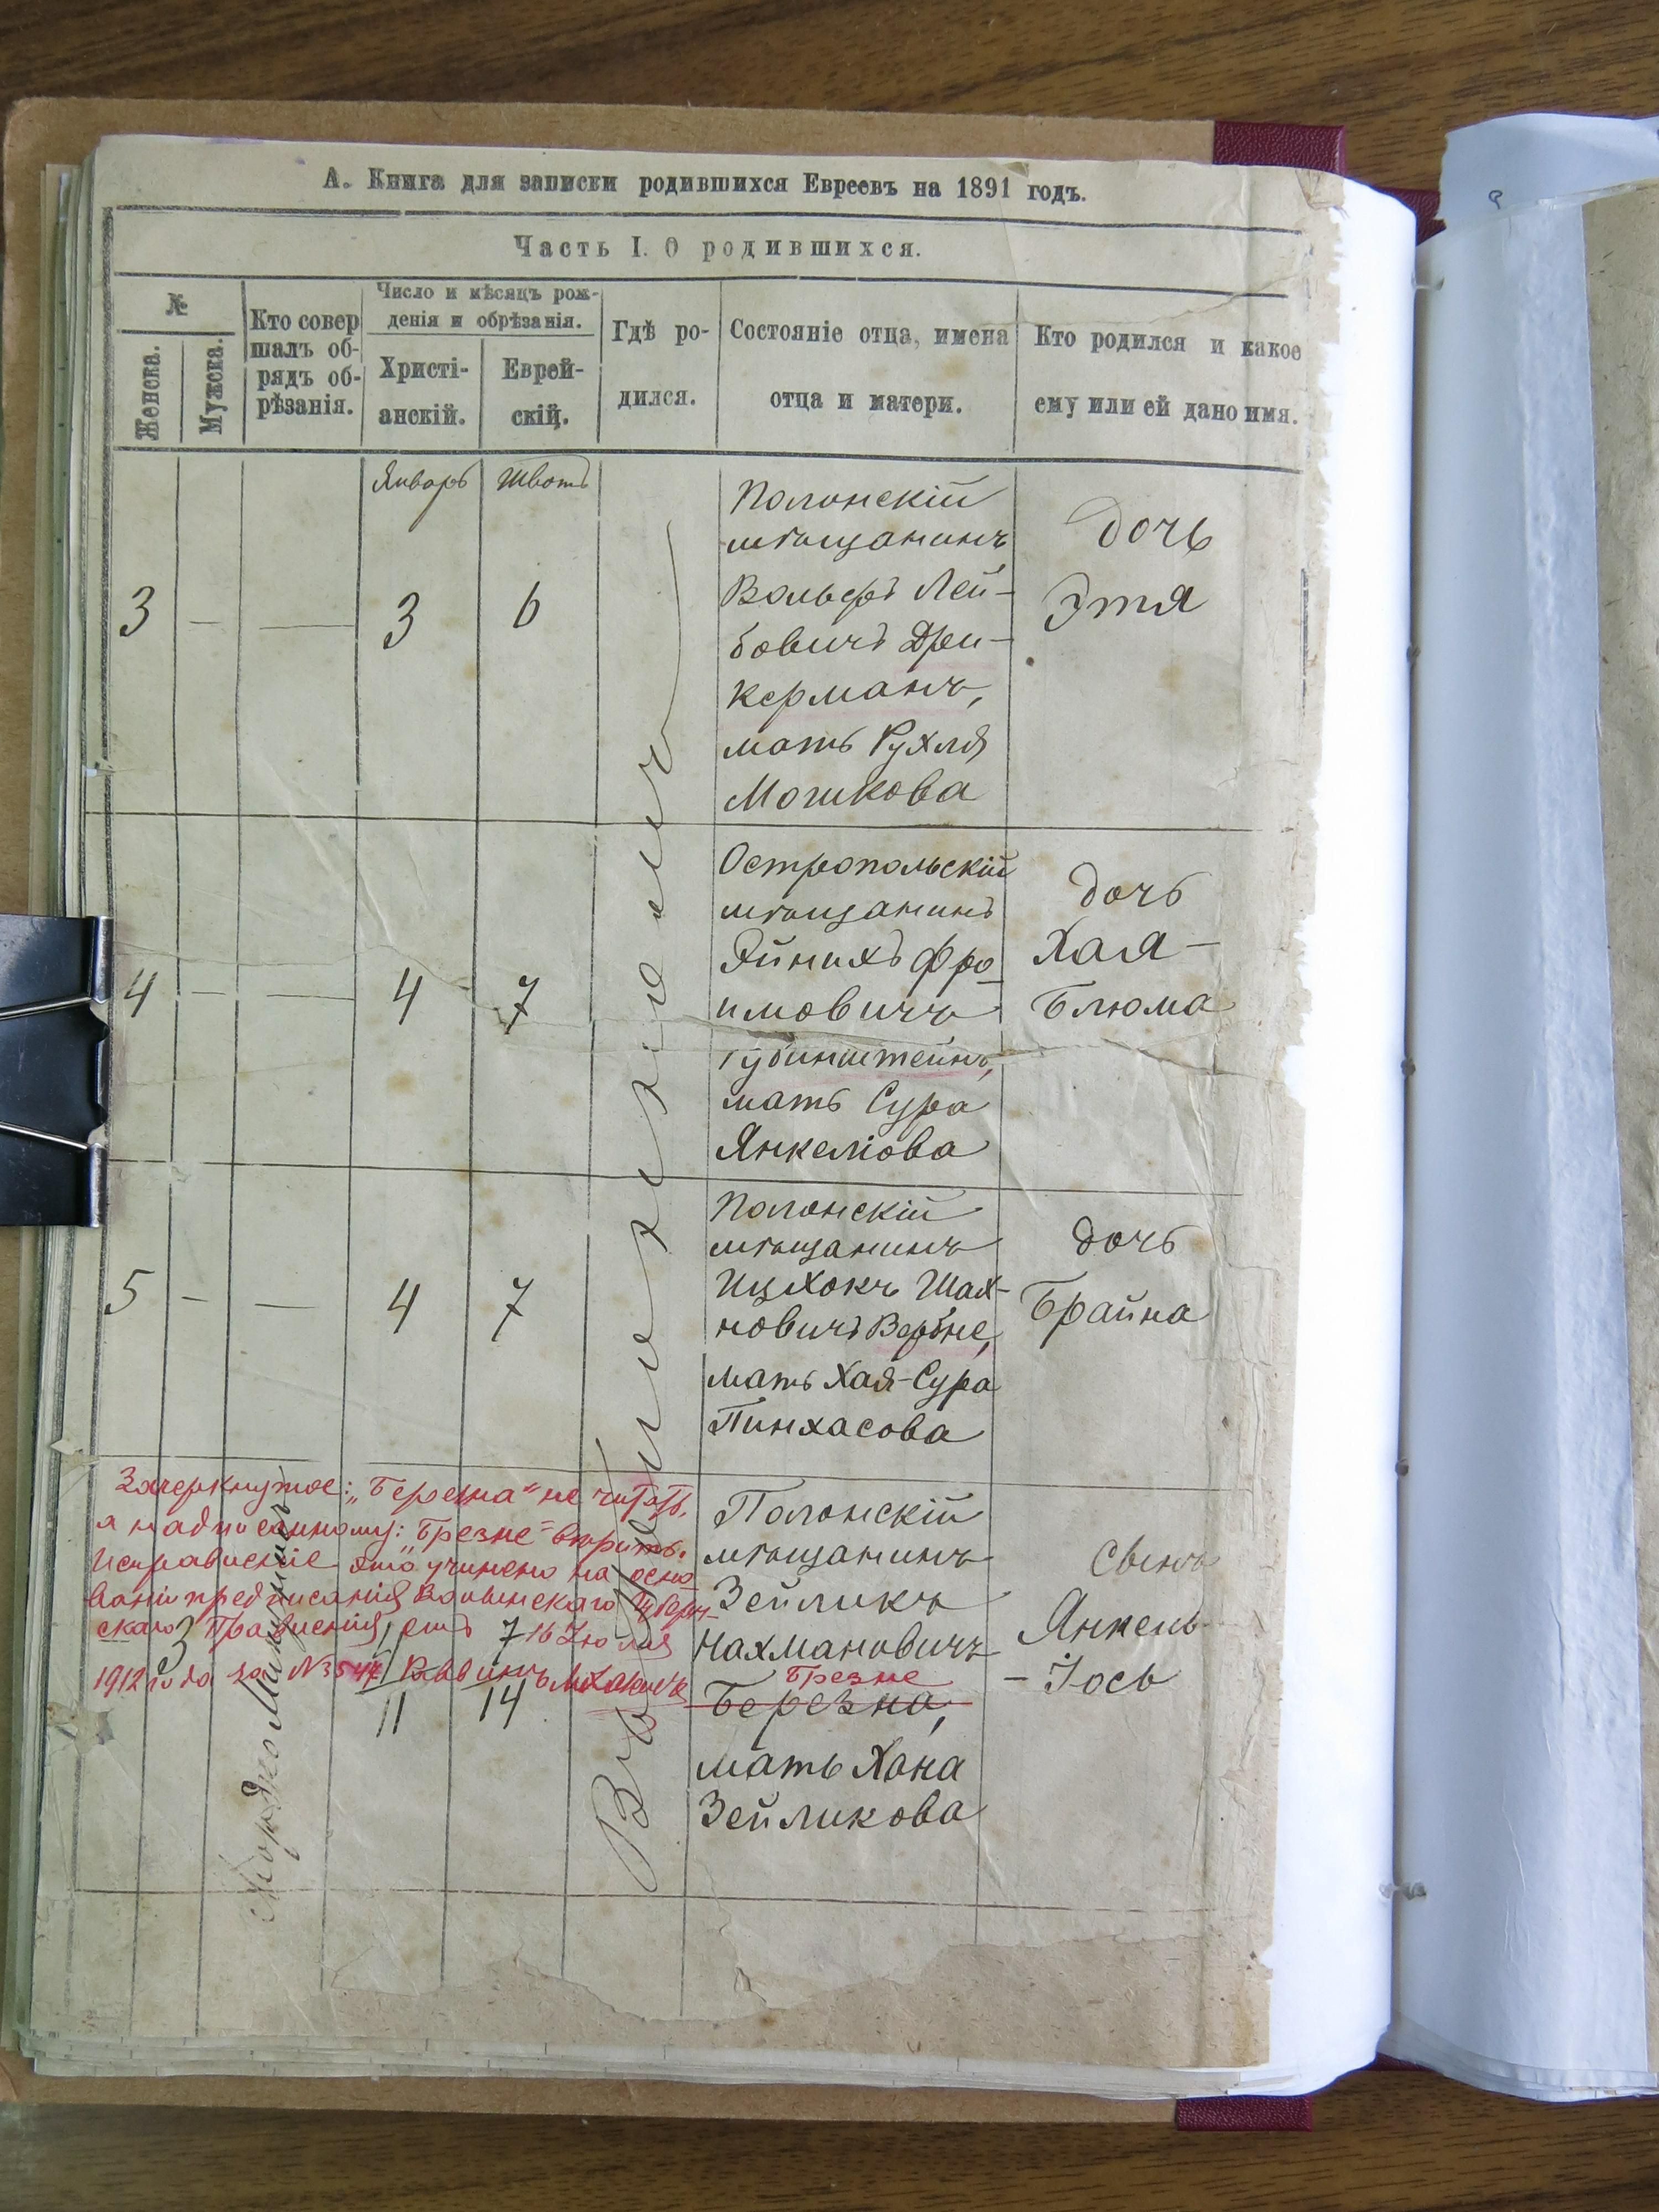 А. Книга для записки родившихся Евреевъ на 1891 годъ.
Часть I. О родившихся.
№
Женска.
Мужска.
Кто совер
шалъ об-
рядъ об-
рѣзанія.
Число и мѣсяцъ рож-
денія и обрѣзанія.
Христі-
анскій.
Еврей-
скій.
Гдѣ ро-
дился.
Состояніе отца, имена
отца и матери.
Кто родился и какое
ему или ей дано имя.
Январь
Шватъ
3
—
—
3
6
Полонскій
мѣщанинъ
Вольфъ Лей-
бовичъ Дри-
керманъ,
мать Рухля
Мошкова
дочь
Этя
4
—
—
4
7
Остропольскій
мѣщанинъ
Фро
имовичъ
Губинштейнъ,
мать Сура
Янкеліова
дочь
Хая-
Блюма
5
—
—
4
7
Полонскій
мѣщанинъ
Ицхокъ Шах-
новичъ
мать Хая-Сура
Пинхасова
дочь
Брайна
Зачеркнутое: „Березна" не читать,
а надписанному: „Брезне" вѣрить.
Исправленіе это учинено на осно
ваніи предписанія Волынскаго Губерн-
скаго Правленія, отъ 16 Іюля
1912 года за № 3547 Раввинъ
3
7
11
14
Полонскій
мѣщанинъ
Зейликъ
Нахмановичъ
Брезне
Березна,
мать Хана
Зейликова
сынъ
Янкель-
-Іось